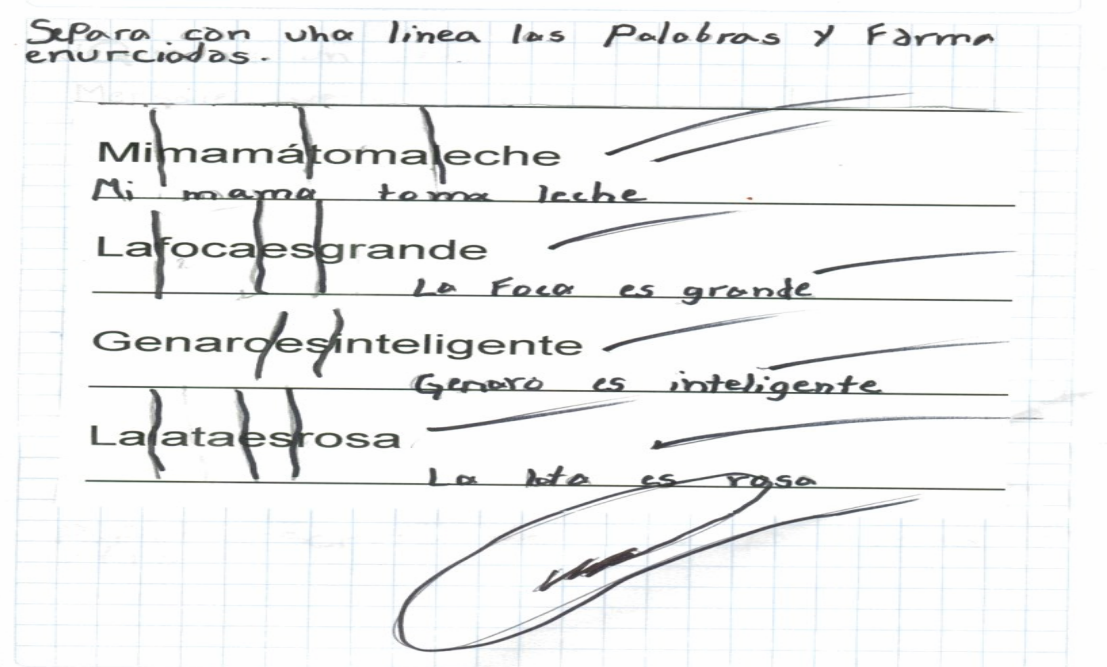 Separa con una linea las Palabras y Forma
enunciados.
Mimamátomaleche
Mi mama toma leche
Lafocaesgrande
La Foca es grande
Genaroesinteligente
Genaro es inteligente
Lalataesrosa
La lata es rosa